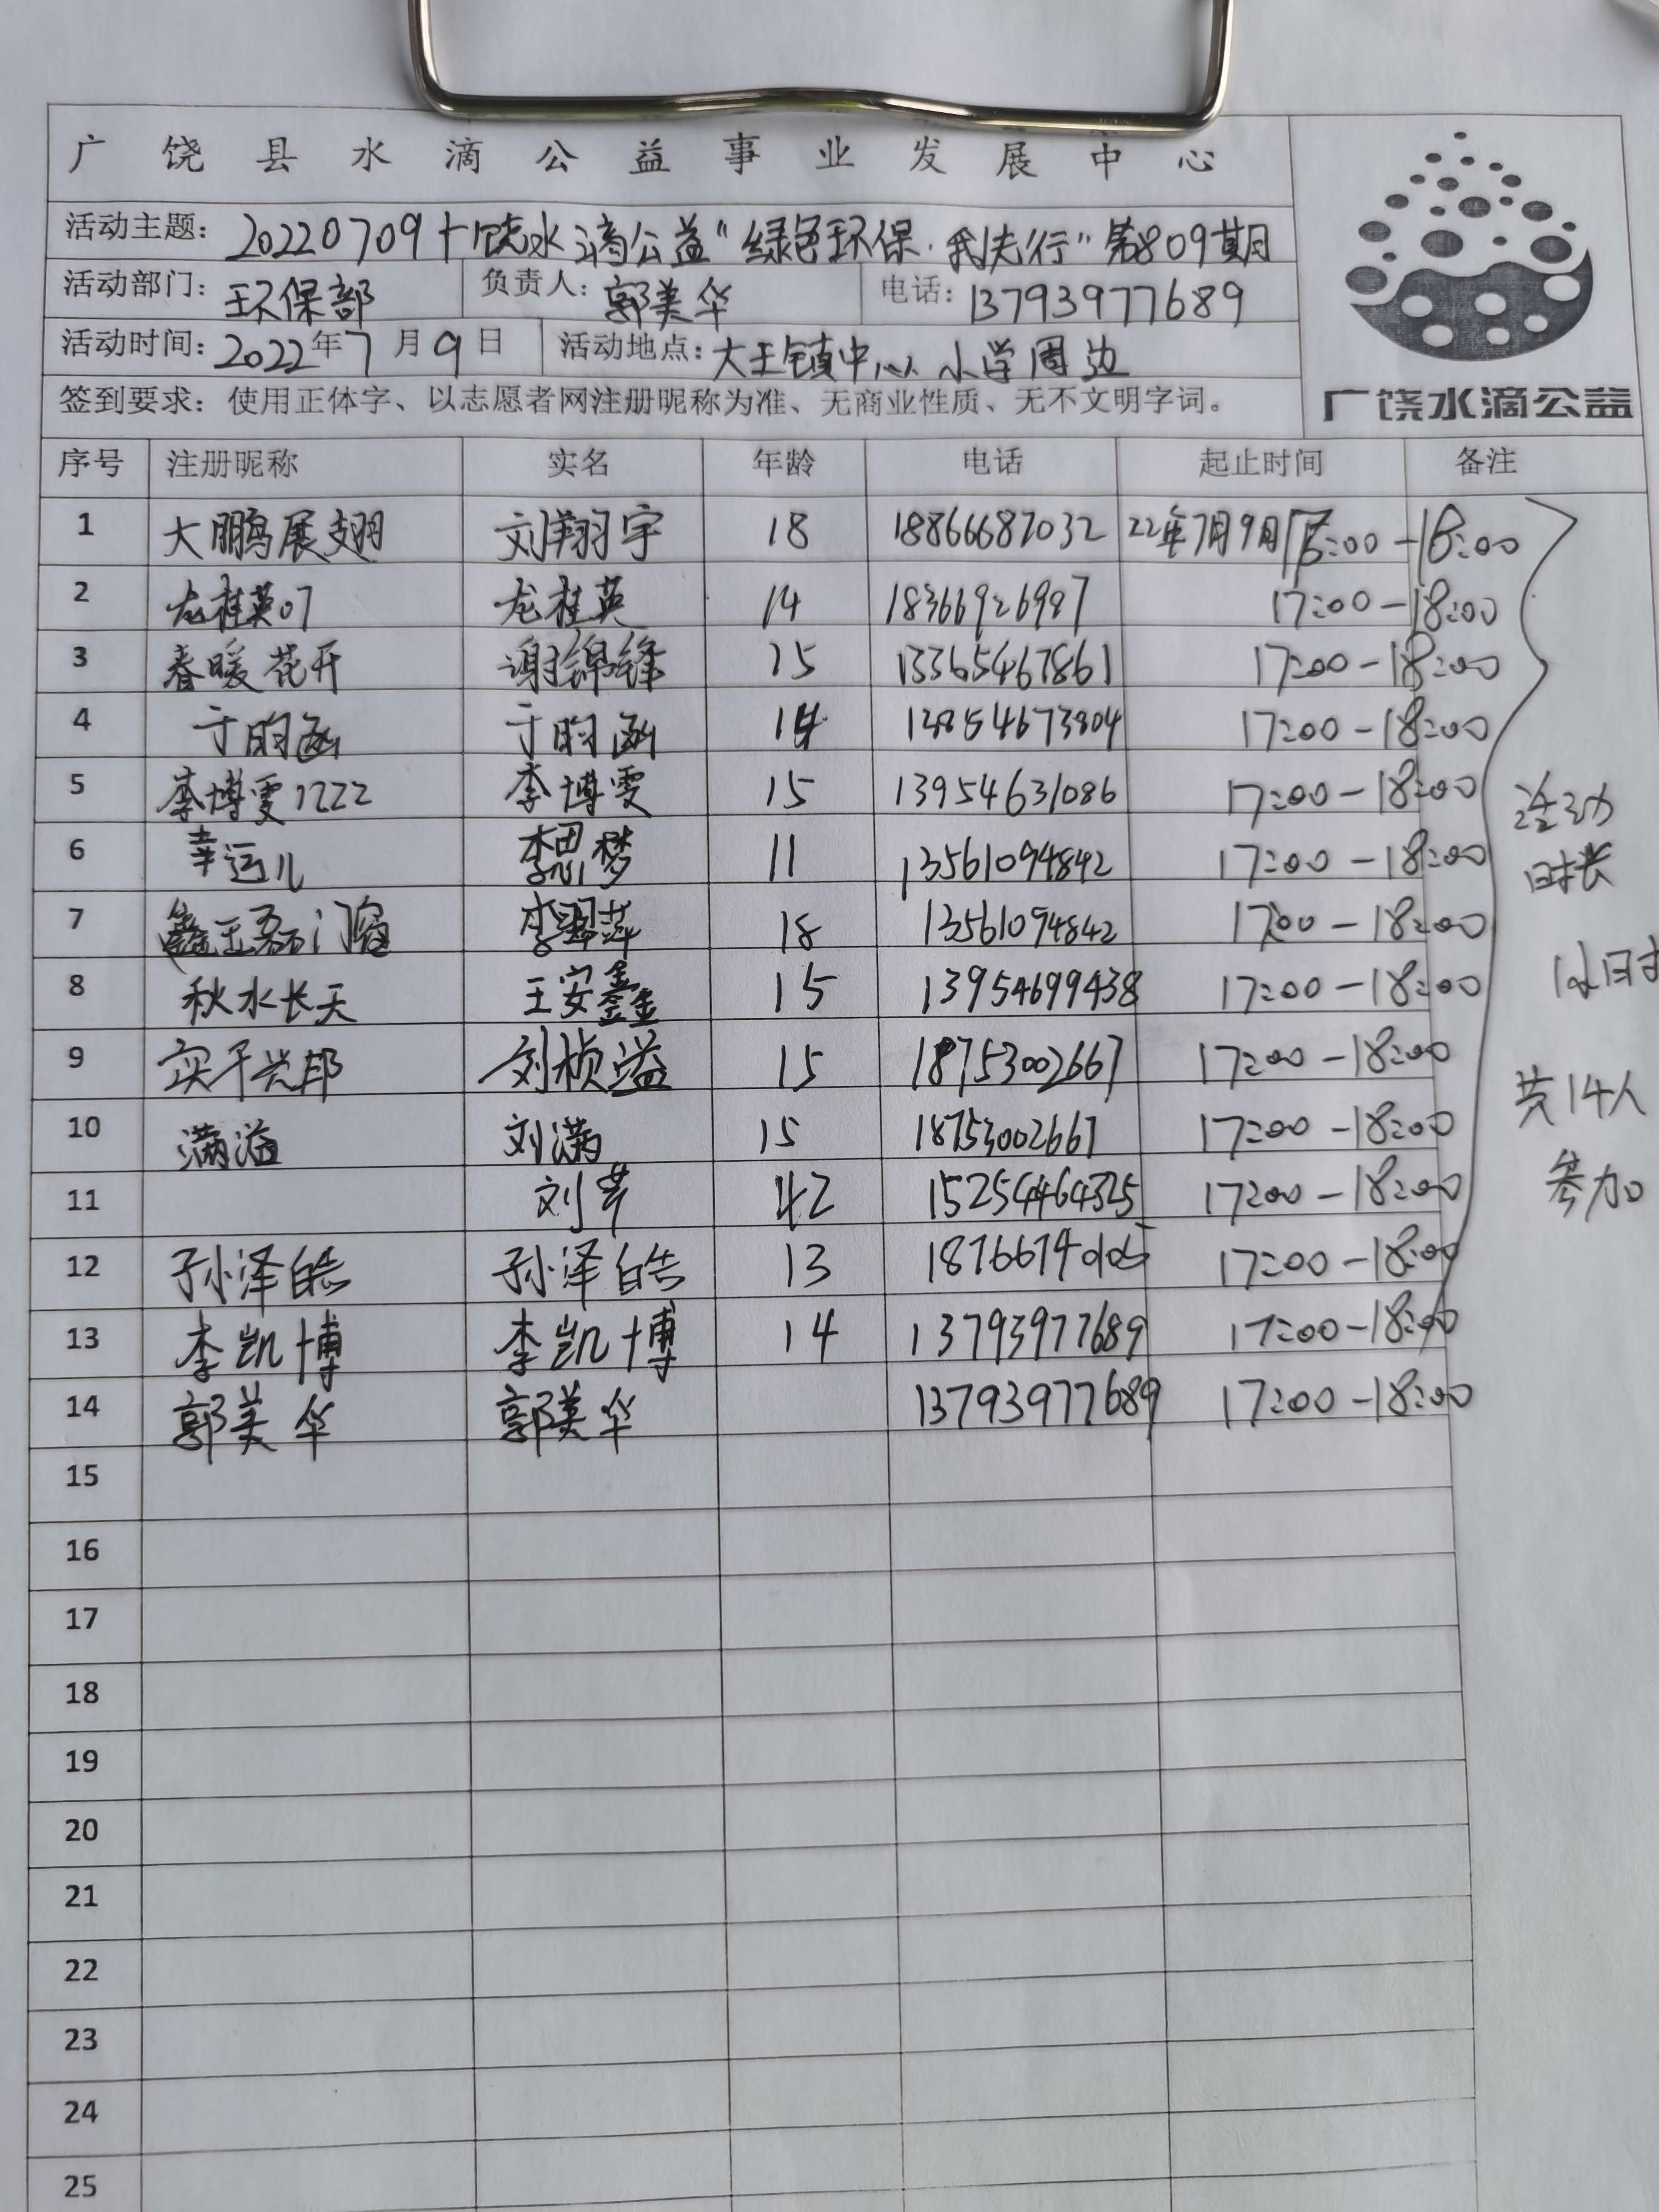 广饶县水滴公益事业发展中心
活动主题：20220709广饶水滴公益"绿色环保·我先行"第809期
活动部门：环保部 负责人：郭美华 电话：13793977689
活动时间：2022年7月9日 活动地点：大王镇中心小学周边
签到要求：使用正体字、以志愿者网注册昵称为准、无商业性质、无不文明字词。
广饶水滴公益
序号 注册昵称 实名 年龄 电话 起止时间 备注
1 大鹏展翅 刘翔宇 18 18866687032 22年7月9日 :00-18:00
2 龙桂英07 龙桂英 14 18366926987 17:00-18:00
3 春暖花开 谢锦锋 15 13365467861 17:00-18:00
4 于昀函 于昀函 14 13854673804 17:00-18:00
5 李博雯1222 李博雯 15 13954631086 17:00-18:00
6 幸运儿 李思梦 11 13561094842 17:00-18:00
7 鑫王磊门窗 李翠萍 18 13561094842 17:00-18:00
8 秋水长天 王安鑫 15 13954699438 17:00-18:00
9 实干兴邦 刘桢溢 15 18753002667 17:00-18:00
10 满溢 刘满 15 18753002667 17:00-18:00
11 刘芹 42 15254464325 17:00-18:00
12 孙泽皓 孙泽皓 13 17:00-18:00
13 李凯博 李凯博 14 13793977689 17:00-18:00
14 郭美华 郭美华 13793977689 17:00-18:00
活动
时长
1小时
共14人
参加
15
16
17
18
19
20
21
22
23
24
25